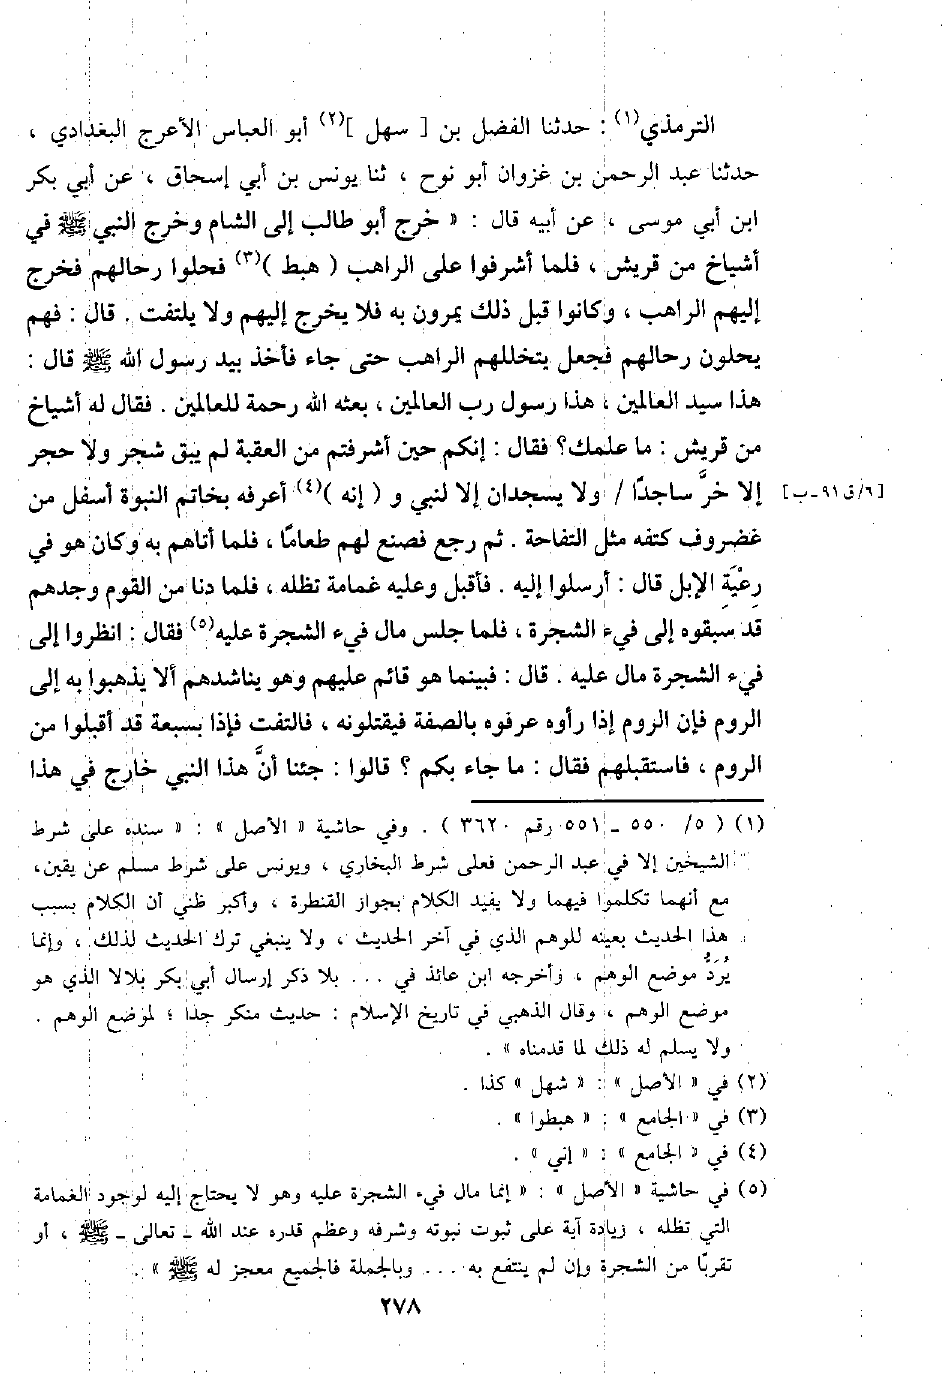 الترمذي(١) : حدثنا الفضل بن [ سهل ](٢) أبو العباس الأعرج البغدادي ،
حدثنا عبد الرحمن بن غزوان أبو نوح ، ثنا يونس بن أبي إسحاق ، عن أبي بكر
ابن أبي موسى ، عن أبيه قال : « خرج أبو طالب إلى الشام وخرج النبي ﷺ في
أشياخ من قريش ، فلما أشرفوا على الراهب ( هبط )(٣) فحلوا رحالهم فخرج
إليهم الراهب ، وكانوا قبل ذلك يمرون به فلا يخرج إليهم ولا يلتفت . قال : فهم
يحلون رحالهم فجعل يتخللهم الراهب حتى جاء فأخذ بيد رسول الله ﷺ قال :
هذا سيد العالمين ، هذا رسول رب العالمين ، بعثه الله رحمة للعالمين . فقال له أشياخ
من قريش : ما علمك؟ فقال : إنكم حين أشرفتم من العقبة لم يبق شجر ولا حجر
إلا خرَّ ساجدًا / ولا يسجدان إلا لنبي و ( إنه )(٤) أعرفه بخاتم النبوة أسفل من [٦/ق٩١-ب]
غضروف كتفه مثل التفاحة . ثم رجع فصنع لهم طعامًا ، فلما أتاهم به وكان هو في
رِعْيَةِ الإبل قال : أرسلوا إليه . فأقبل وعليه غمامة تظله ، فلما دنا من القوم وجدهم
قد سبقوه إلى فيء الشجرة ، فلما جلس مال فيء الشجرة عليه(٥) فقال : انظروا إلى
فيء الشجرة مال عليه . قال : فبينما هو قائم عليهم وهو يناشدهم ألا يذهبوا به إلى
الروم فإن الروم إذا رأوه عرفوه بالصفة فيقتلونه ، فالتفت فإذا بسبعة قد أقبلوا من
الروم ، فاستقبلهم فقال : ما جاء بكم ؟ قالوا : جئنا أنَّ هذا النبي خارج في هذا
(١) ( ٥/ ٥٥٠ ـ ٥٥١ رقم ٣٦٢٠ ) . وفي حاشية « الأصل » : « سنده على شرط
الشيخين إلا في عبد الرحمن فعلى شرط البخاري ، ويونس على شرط مسلم عن يقين،
مع أنهما تكلموا فيهما ولا يفيد الكلام بجواز القنطرة ، وأكبر ظني أن الكلام بسبب
هذا الحديث بعينه للوهم الذي في آخر الحديث ، ولا ينبغي ترك الحديث لذلك ، وإنما
يُرَدُّ موضع الوهم ، وأخرجه ابن عائذ في ... بلا ذكر إرسال أبي بكر بلالا الذي هو
موضع الوهم ، وقال الذهبي في تاريخ الإسلام : حديث منكر جدا ؛ لموضع الوهم .
ولا يسلم له ذلك لما قدمناه » .
(٢) في « الأصل » : « شهل » كذا .
(٣) في « الجامع » : « هبطوا » .
(٤) في « الجامع » : « إني » .
(٥) في حاشية « الأصل » : « إنما مال فيء الشجرة عليه وهو لا يحتاج إليه لوجود الغمامة
التي تظله ، زيادة آية على ثبوت نبوته وشرفه وعظم قدره عند الله ـ تعالى ـ ﷺ ، أو
تقربًا من الشجرة وإن لم ينتفع به ... وبالجملة فالجميع معجز له ﷺ » .
٢٧٨